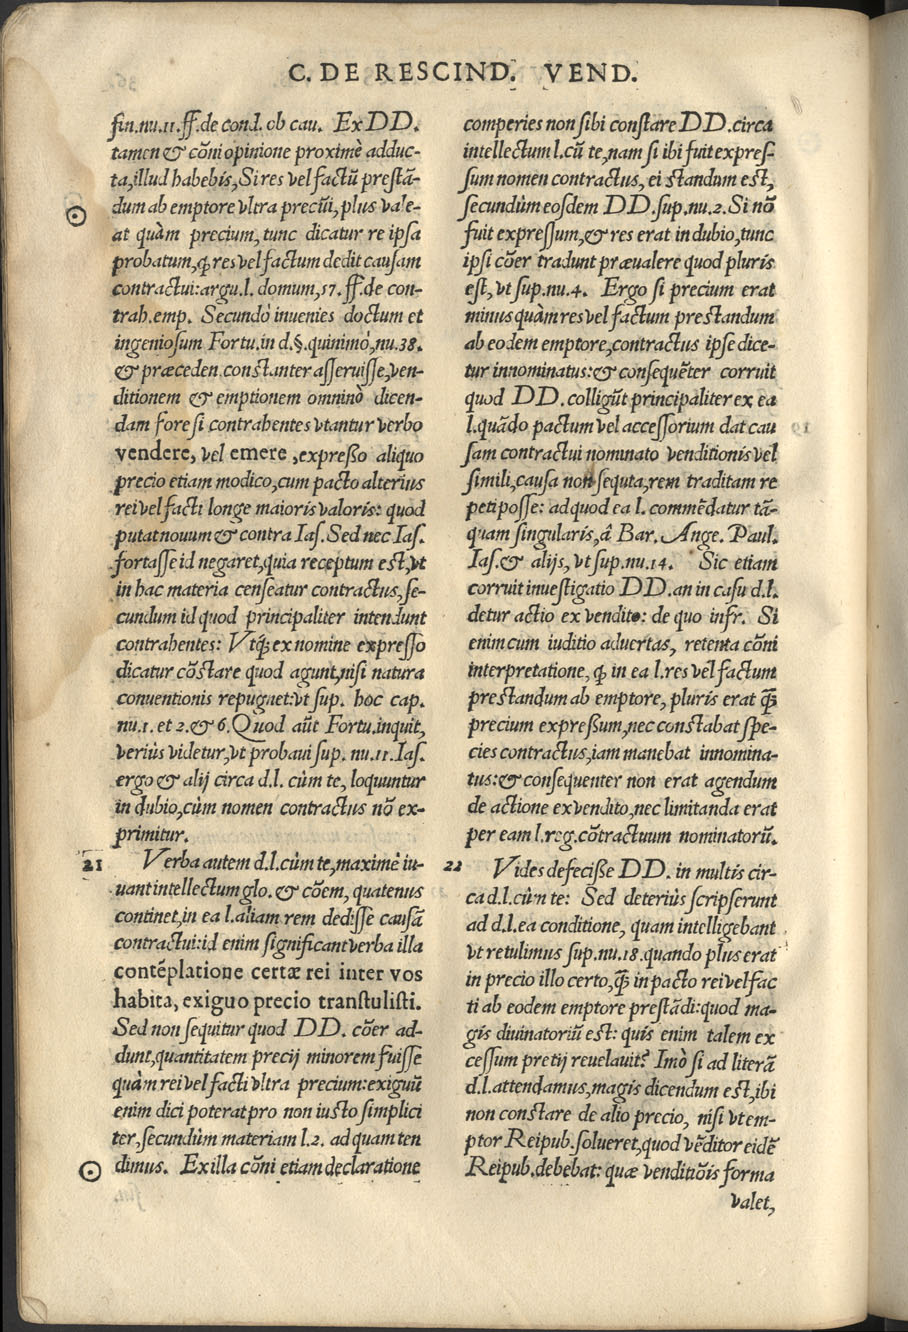 C. DE RESCIND. VEND.
fin.nu.11.ff.de cond. ob cau. Ex DD.
tamen & cõni opinione proximè adduc-
ta, illud habebis, Si res vel factũ prestã-
dum ab emptore vltra preciũ, plus vale-
at quàm precium, tunc dicatur re ipsa
probatum, q̃ res vel factum dedit causam
contractui: argu.l. domum, 57. ff. de con-
trah.emp. Secundò inuenies doctum et
ingeniosum Fortu.in d.§.quinimò, nu.38.
& præceden.constanter asseruisse, ven-
ditionem & emptionem omninò dicen-
dam fore si contrahentes vtantur verbo
vendere, vel emere, expreßo aliquo
precio etiam modico, cum pacto alterius
rei vel facti longe maioris valoris: quod
putat nouum & contra Ias. Sed nec Ias.
fortasse id negaret, quia receptum est, vt
in hac materia censeatur contractus, se-
cundum id quod principaliter intendunt
contrahentes: Vtq̃ ex nomine expresso
dicatur cõstare quod agunt, nisi natura
conuentionis repugnet: vt sup. hoc cap.
nu.1. et 2. & 6. Quod aũt Fortu.inquit,
veriùs videtur, vt probaui sup. nu.11. Ias.
ergo & alij circa d.l. cùm te, loquuntur
in dubio, cùm nomen contractus nõ ex-
primitur.
21 Verba autem d.l.cùm te, maximè iu-
uant intellectum glo. & cõem, quatenus
continet, in ea l. aliam rem dedisse causã
contractui: id enim significant verba illa
contẽplatione certæ rei inter vos
habita, exiguo precio transtulisti.
Sed non sequitur quod DD. cõer ad-
dunt, quantitatem precij minorem fuisse
quàm rei vel facti vltra precium: exiguũ
enim dici poterat pro non iusto simplici
ter, secundùm materiam l.2. ad quam ten
dimus. Ex illa cõni etiam declaratione
comperies non sibi constare DD. circa
intellectum l. cũ te, nam si ibi fuit expres-
sum nomen contractus, ei standum est,
secundùm eosdem DD. sup. nu. 2. Si nõ
fuit expressum, & res erat in dubio, tunc
ipsi cõer tradunt præualere quod pluris
est, vt sup. nu.4. Ergo si precium erat
minus quàm res vel factum prestandum
ab eodem emptore, contractus ipse dice-
tur innominatus: & consequẽter corruit
quod DD. colligũt principaliter ex ea
l. quãdo pactum vel accessorium dat cau
sam contractui nominato venditionis vel
simili, causa non sequta, rem traditam re
peti posse: ad quod ea l. commẽdatur tã-
quam singularis, â Bar. Ange. Paul.
Ias. & alijs, vt sup.nu.14. Sic etiam
corruit inuestigatio DD. an in casu d.l.
detur actio ex vendito: de quo infr. Si
enim cum iuditio aduertas, retenta cõni
interpretatione, q̃ in ea l. res vel factum
prestandum ab emptore, pluris erat q̃
precium expreßum, nec constabat spe-
cies contractus, iam manebat innomina-
tus: & consequenter non erat agendum
de actione ex vendito, nec limitanda erat
per eam l. reg. cõtractuum nominatorũ.
22 Vides defeciße DD. in multis cir-
ca d.l. cùm te: Sed deteriùs scripserunt
ad d.l. ea conditione, quam intelligebant
vt retulimus sup.nu.18. quando plus erat
in precio illo certo, q̃ in pacto rei vel fac
ti ab eodem emptore prestãdi: quod ma-
gis diuinatoriũ est: quis enim talem ex
cessum pretij reuelauit? Imò si ad literã
d.l. attendamus, magis dicendum est, ibi
non constare de alio precio, nisi vt em-
ptor Reipub. solueret, quod vẽditor eidẽ
Reipub. debebat: quæ venditiõis forma
valet,